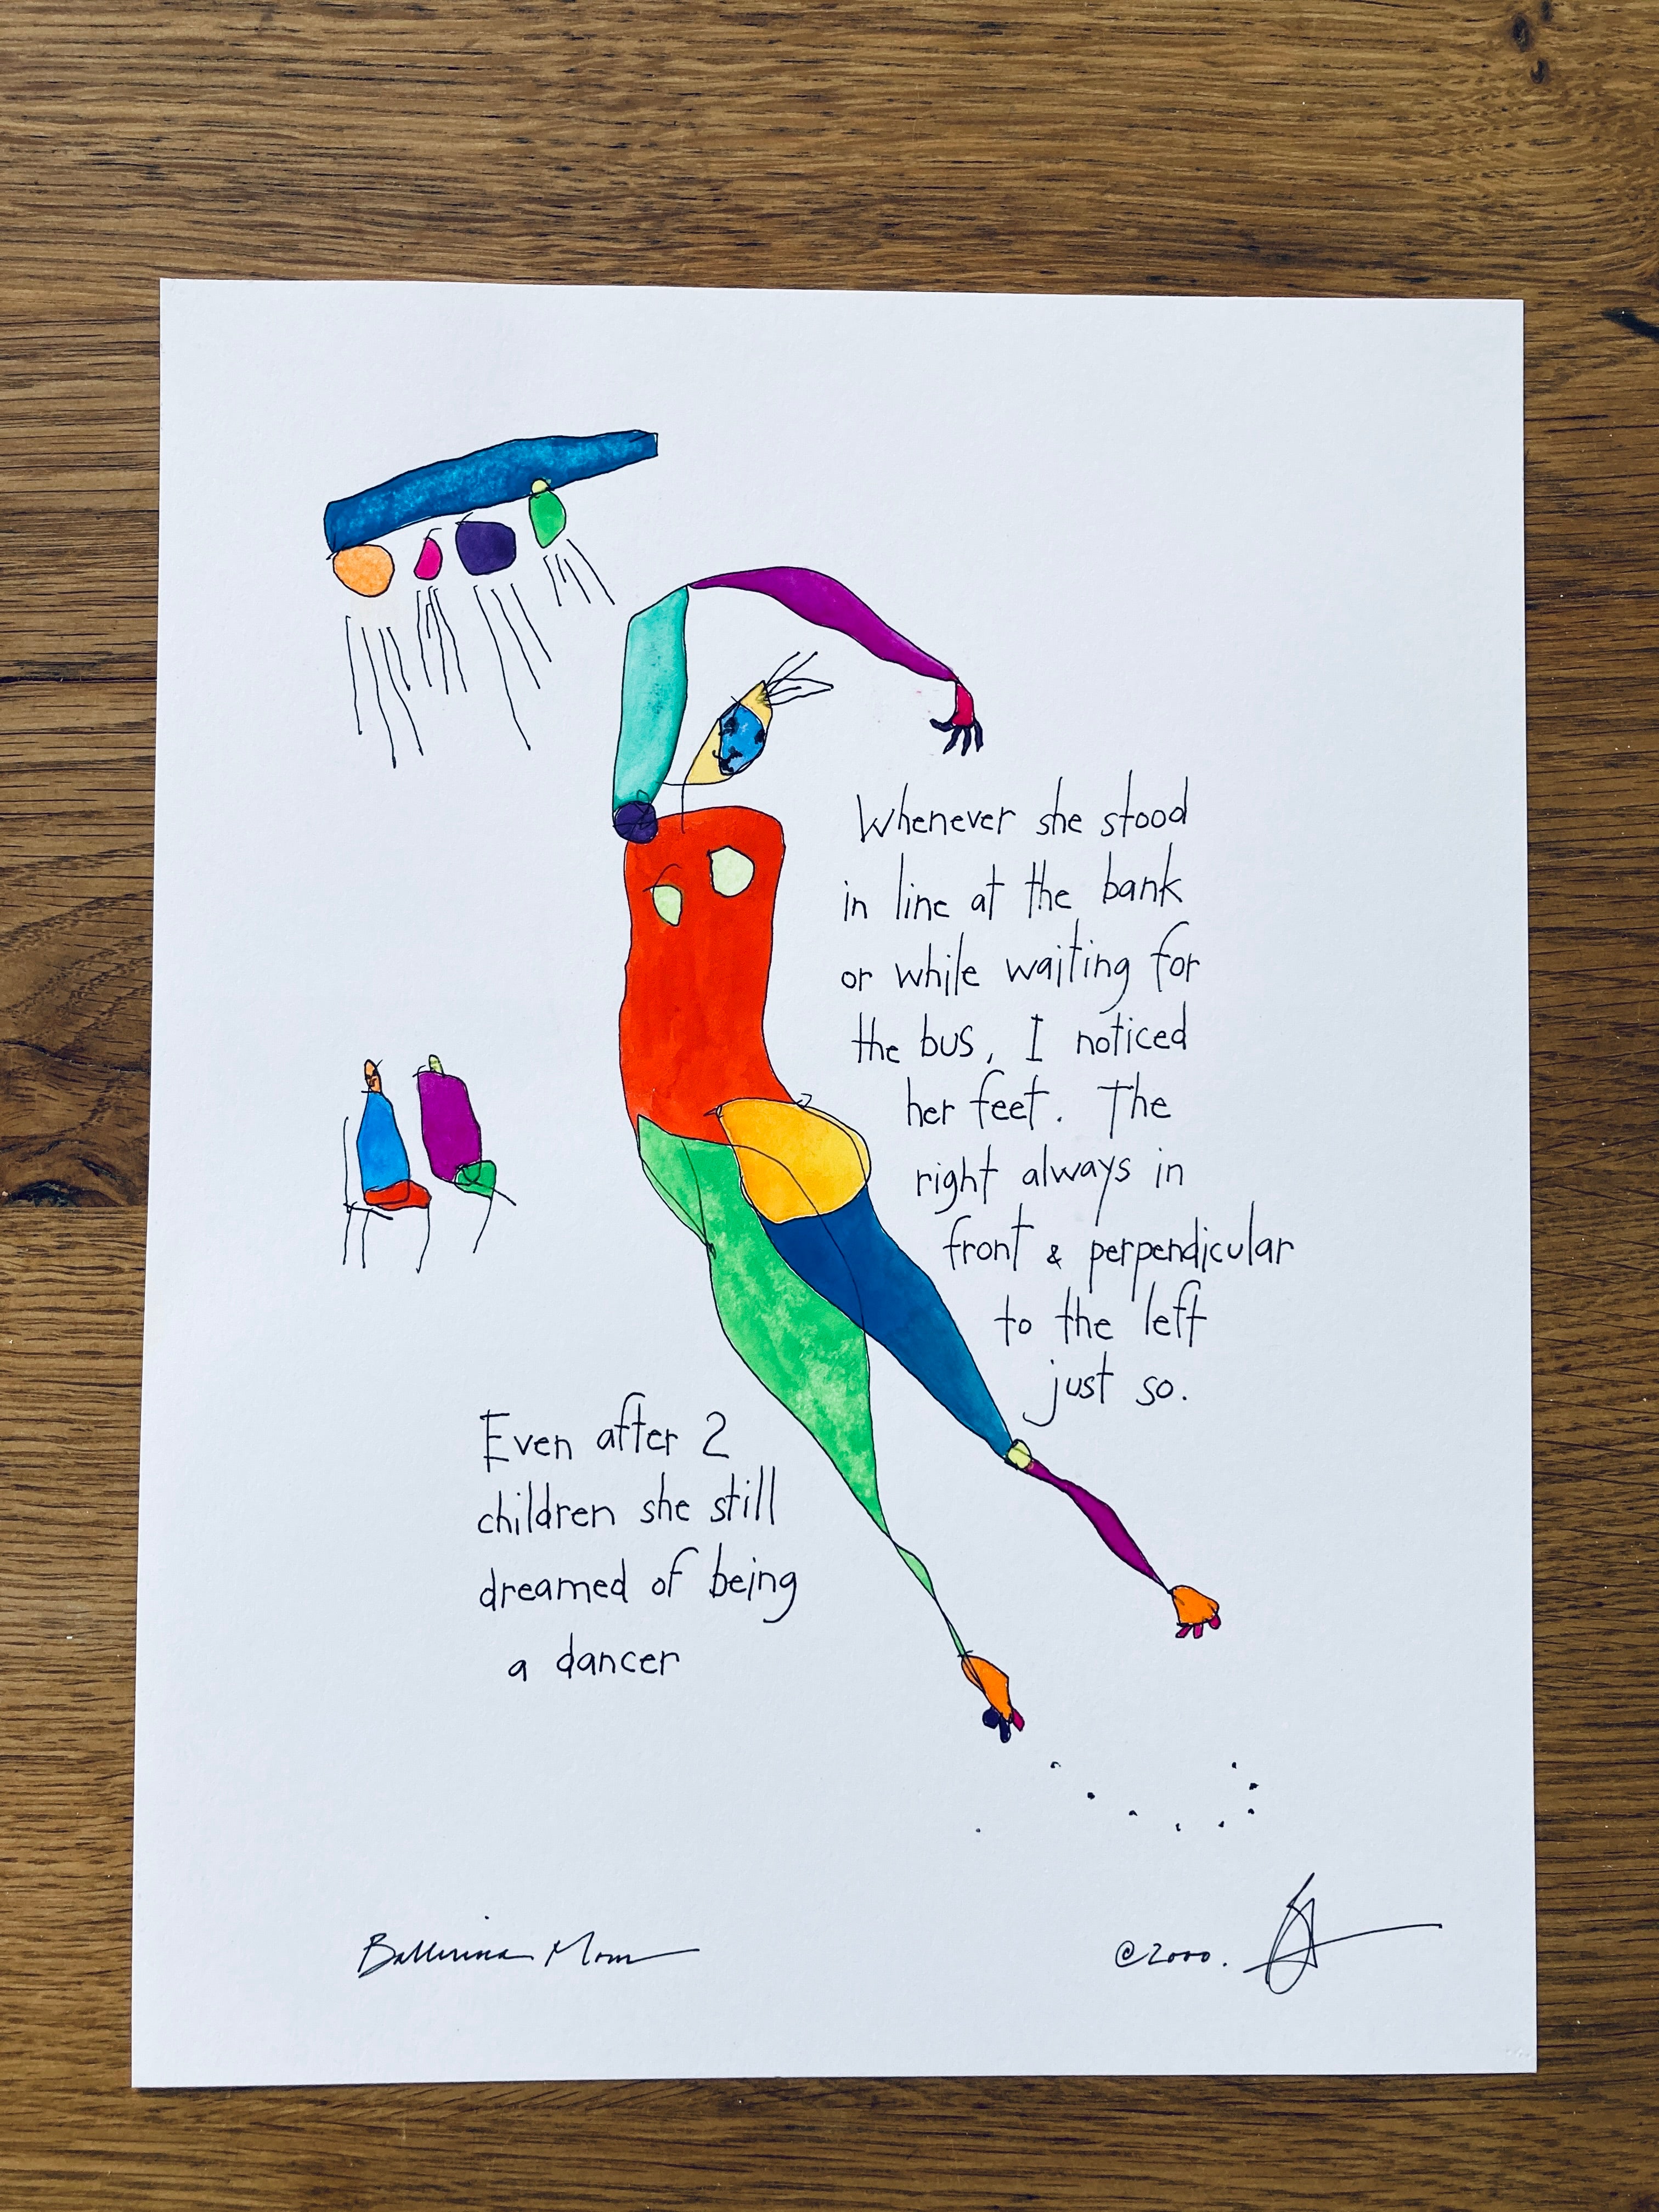 Whenever she stood
in line at the bank
or while waiting for
the bus, I noticed
her feet. The
right always in
front & perpendicular
to the left
just so.
Even after 2
children she still
dreamed of being
a dancer
Ballerina Mom
©2000.